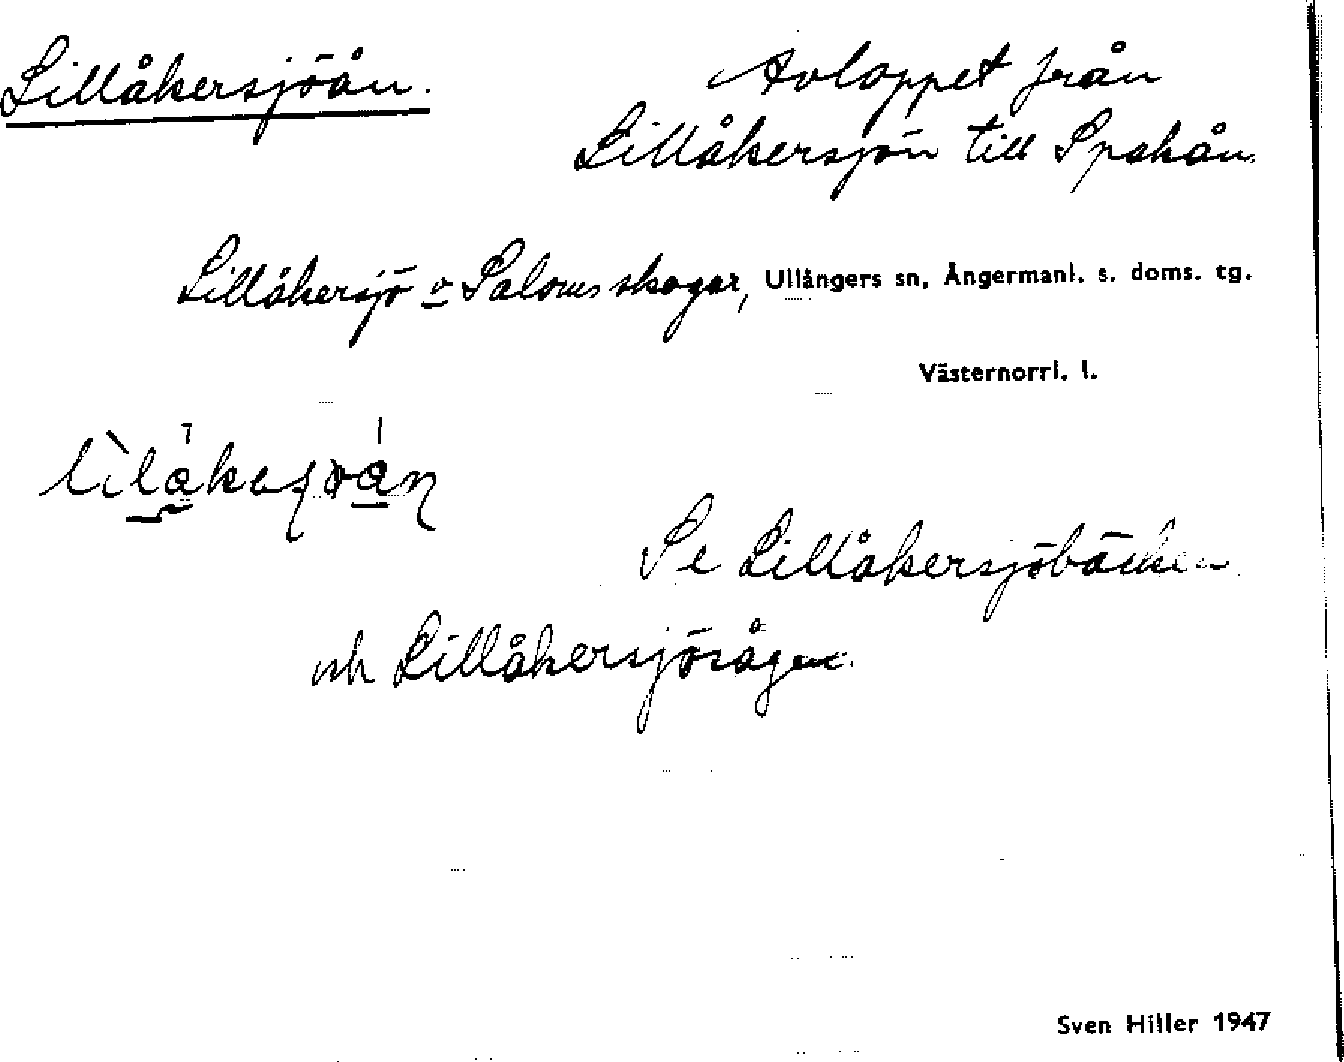 Lillåkersjöån.
Avloppet från
Lillåkersjön till Spakån
Lillåkersjö o Saloms skogar, Ullångers sn, Ångermanl. s. doms. tg.
Västernorrl. l.
Se Lillåkersjöbäcken
och Lillåkersjösågen.
Sven Hiller 1947